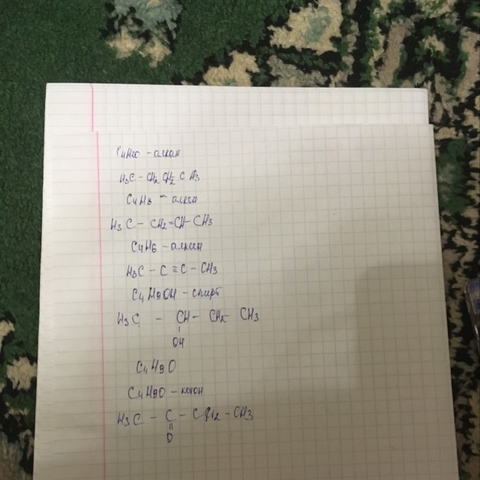 C4H10 – алкан
H3C – CH2 – CH2 – CH3
C4H8 – алкен
H3C – CH2=CH–CH3
C4H6 – алкин
H3C – C ≡ C – CH3
C4H9OH – спирт
H3C – CH – CH2 – CH3
OH
C4H9O
C4H9O – кетон
H3C – C – CH2 – CH3
O